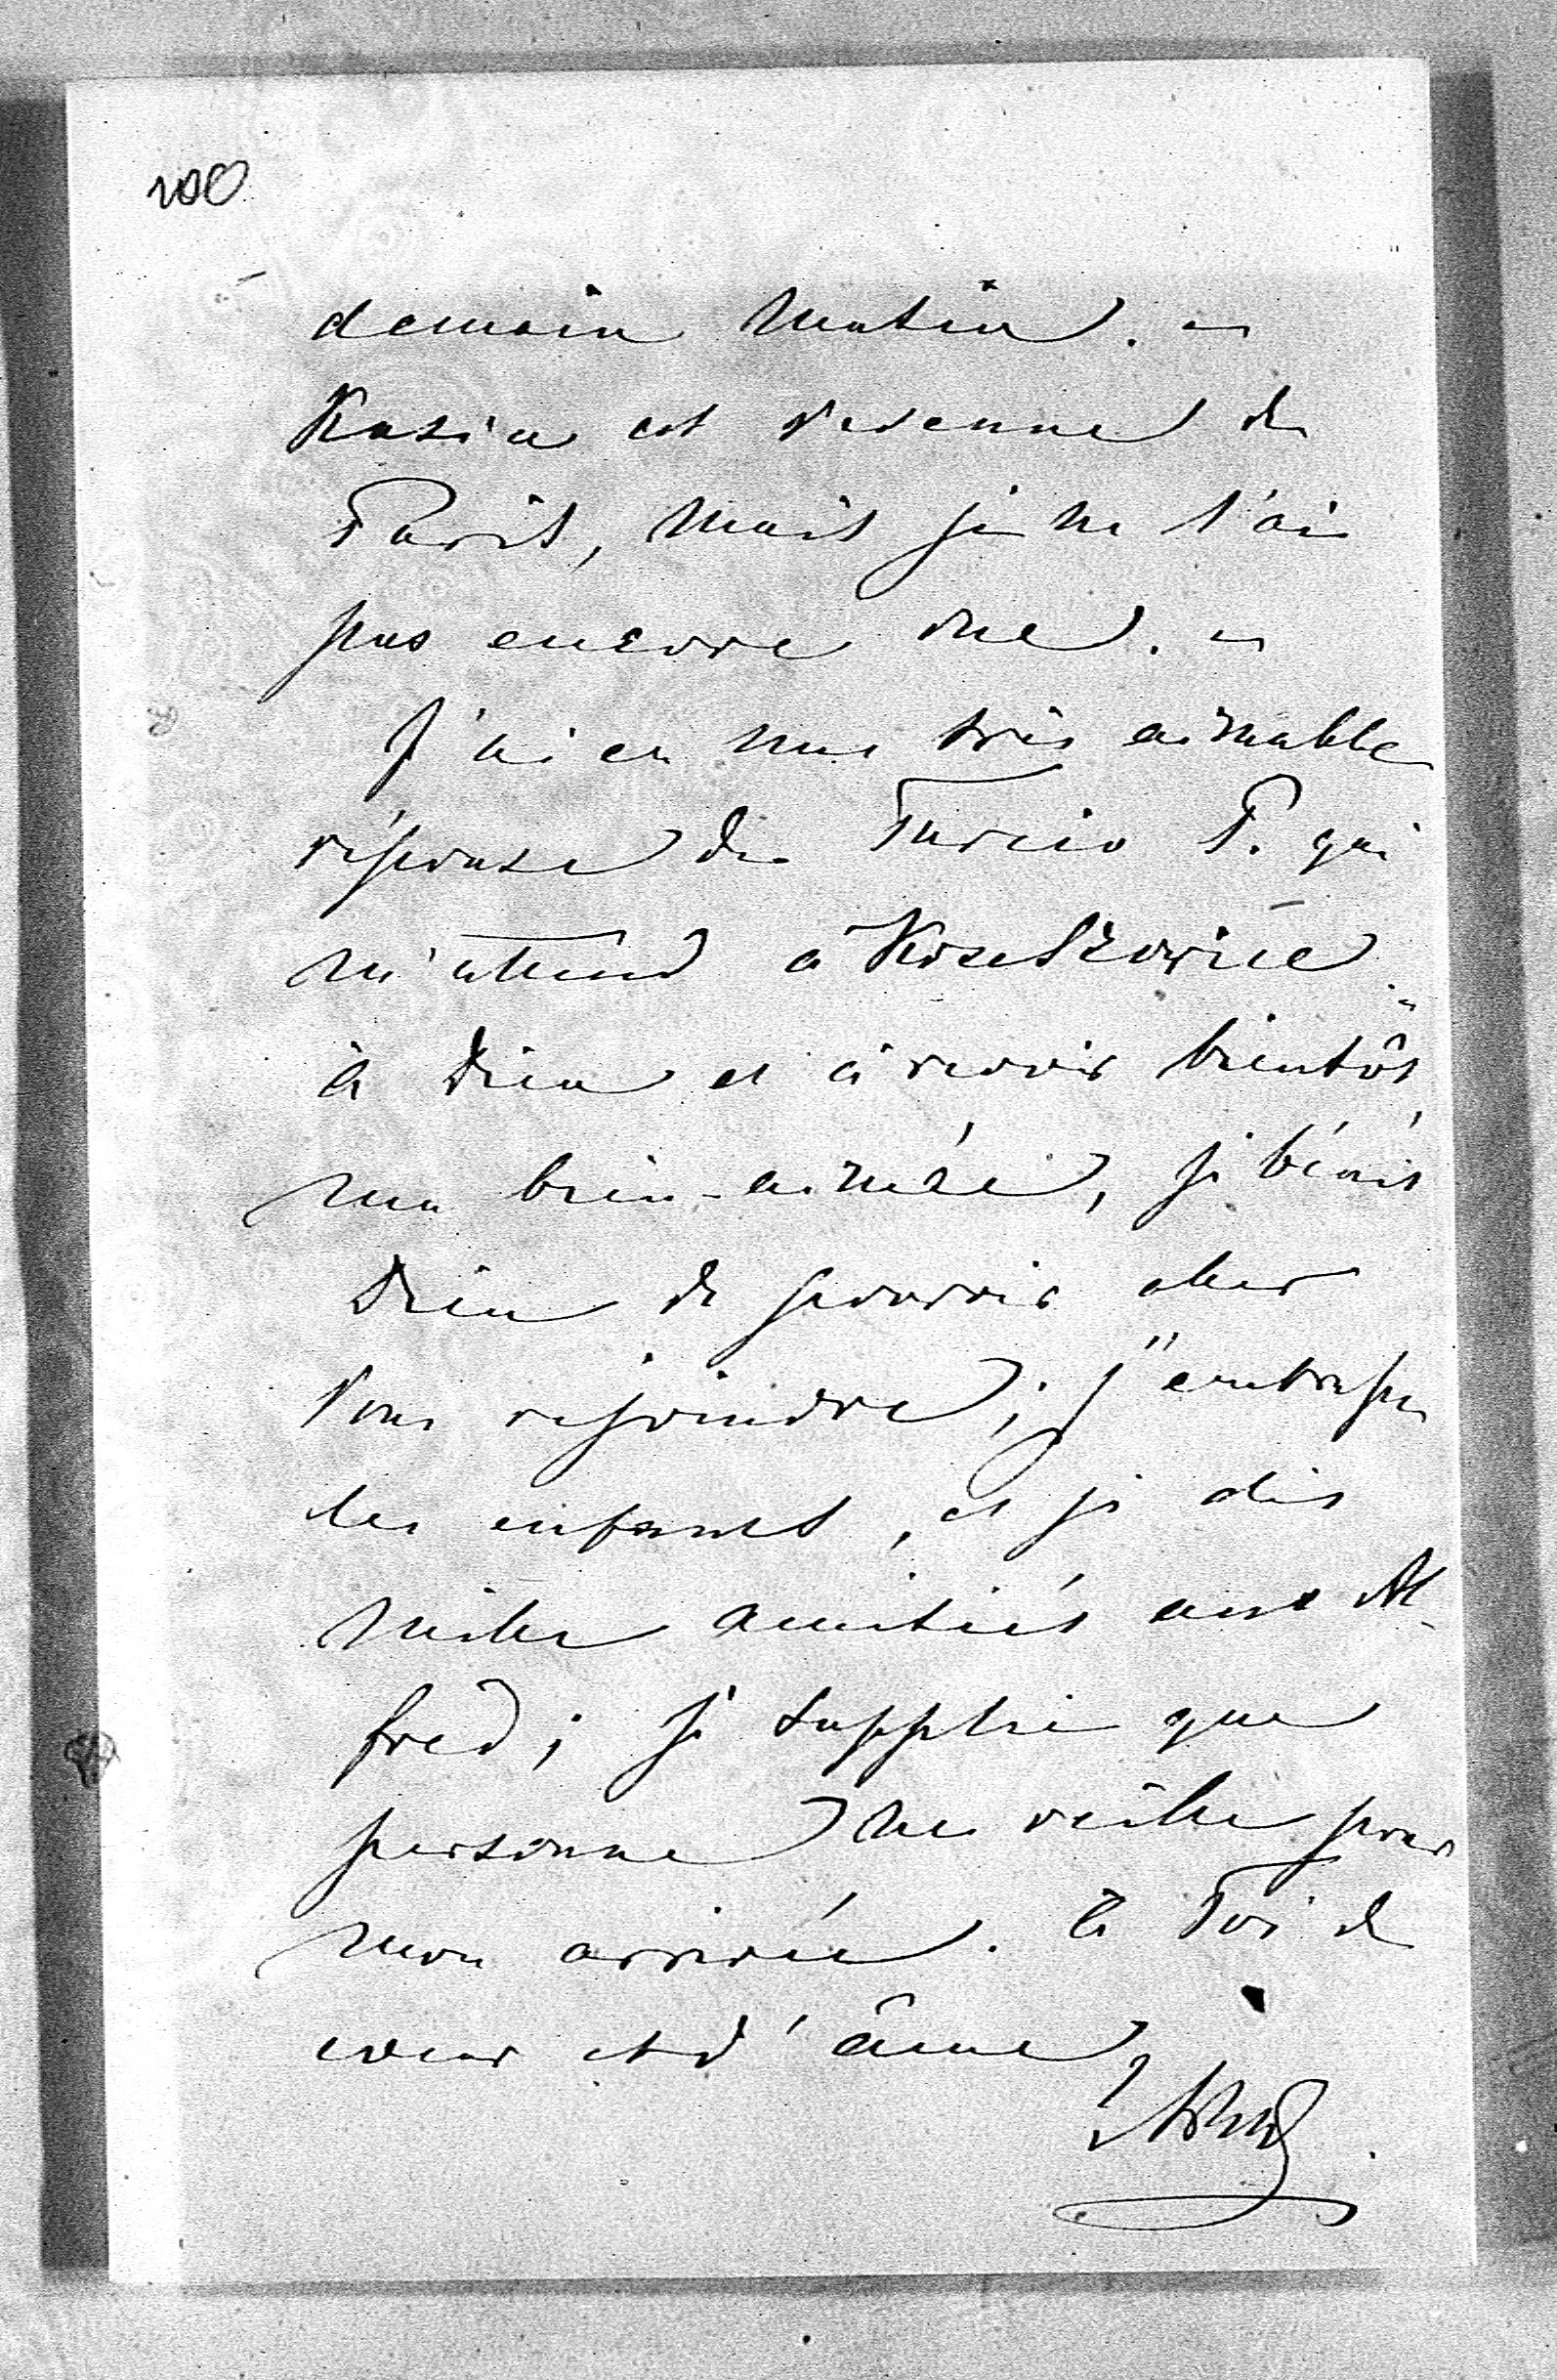 200
demain matin. –
Kasia est revenue de
Paris, mais je ne l'ai
pas encore vue. –
J'ai eu une très aimable
réponse de P. qui
m'attend à
à Dieu et à revoir bientôt
ma bien-aimée, je bénis
Dieu de pouvoir aller
vous rejoindre; j'embrasse
les enfants, et je dis
mille amitiés aux Al-
fred; je supplie que
personne ne veille pour
mon arrivée. à Toi de
coeur et d'âme